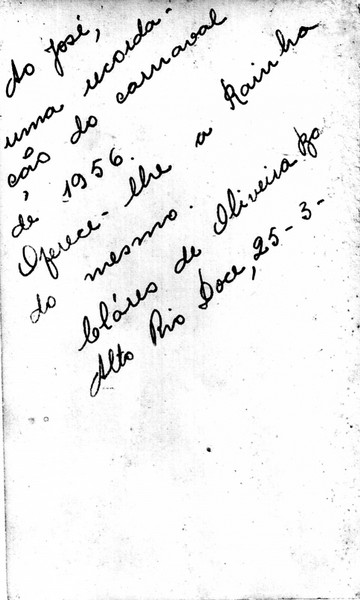 Ao José,
uma recorda-
ção do carnaval
de 1956.
Oferece-lhe a Rainha
do mesmo.
de Oliveira
Alto Rio Doce, 25-3-